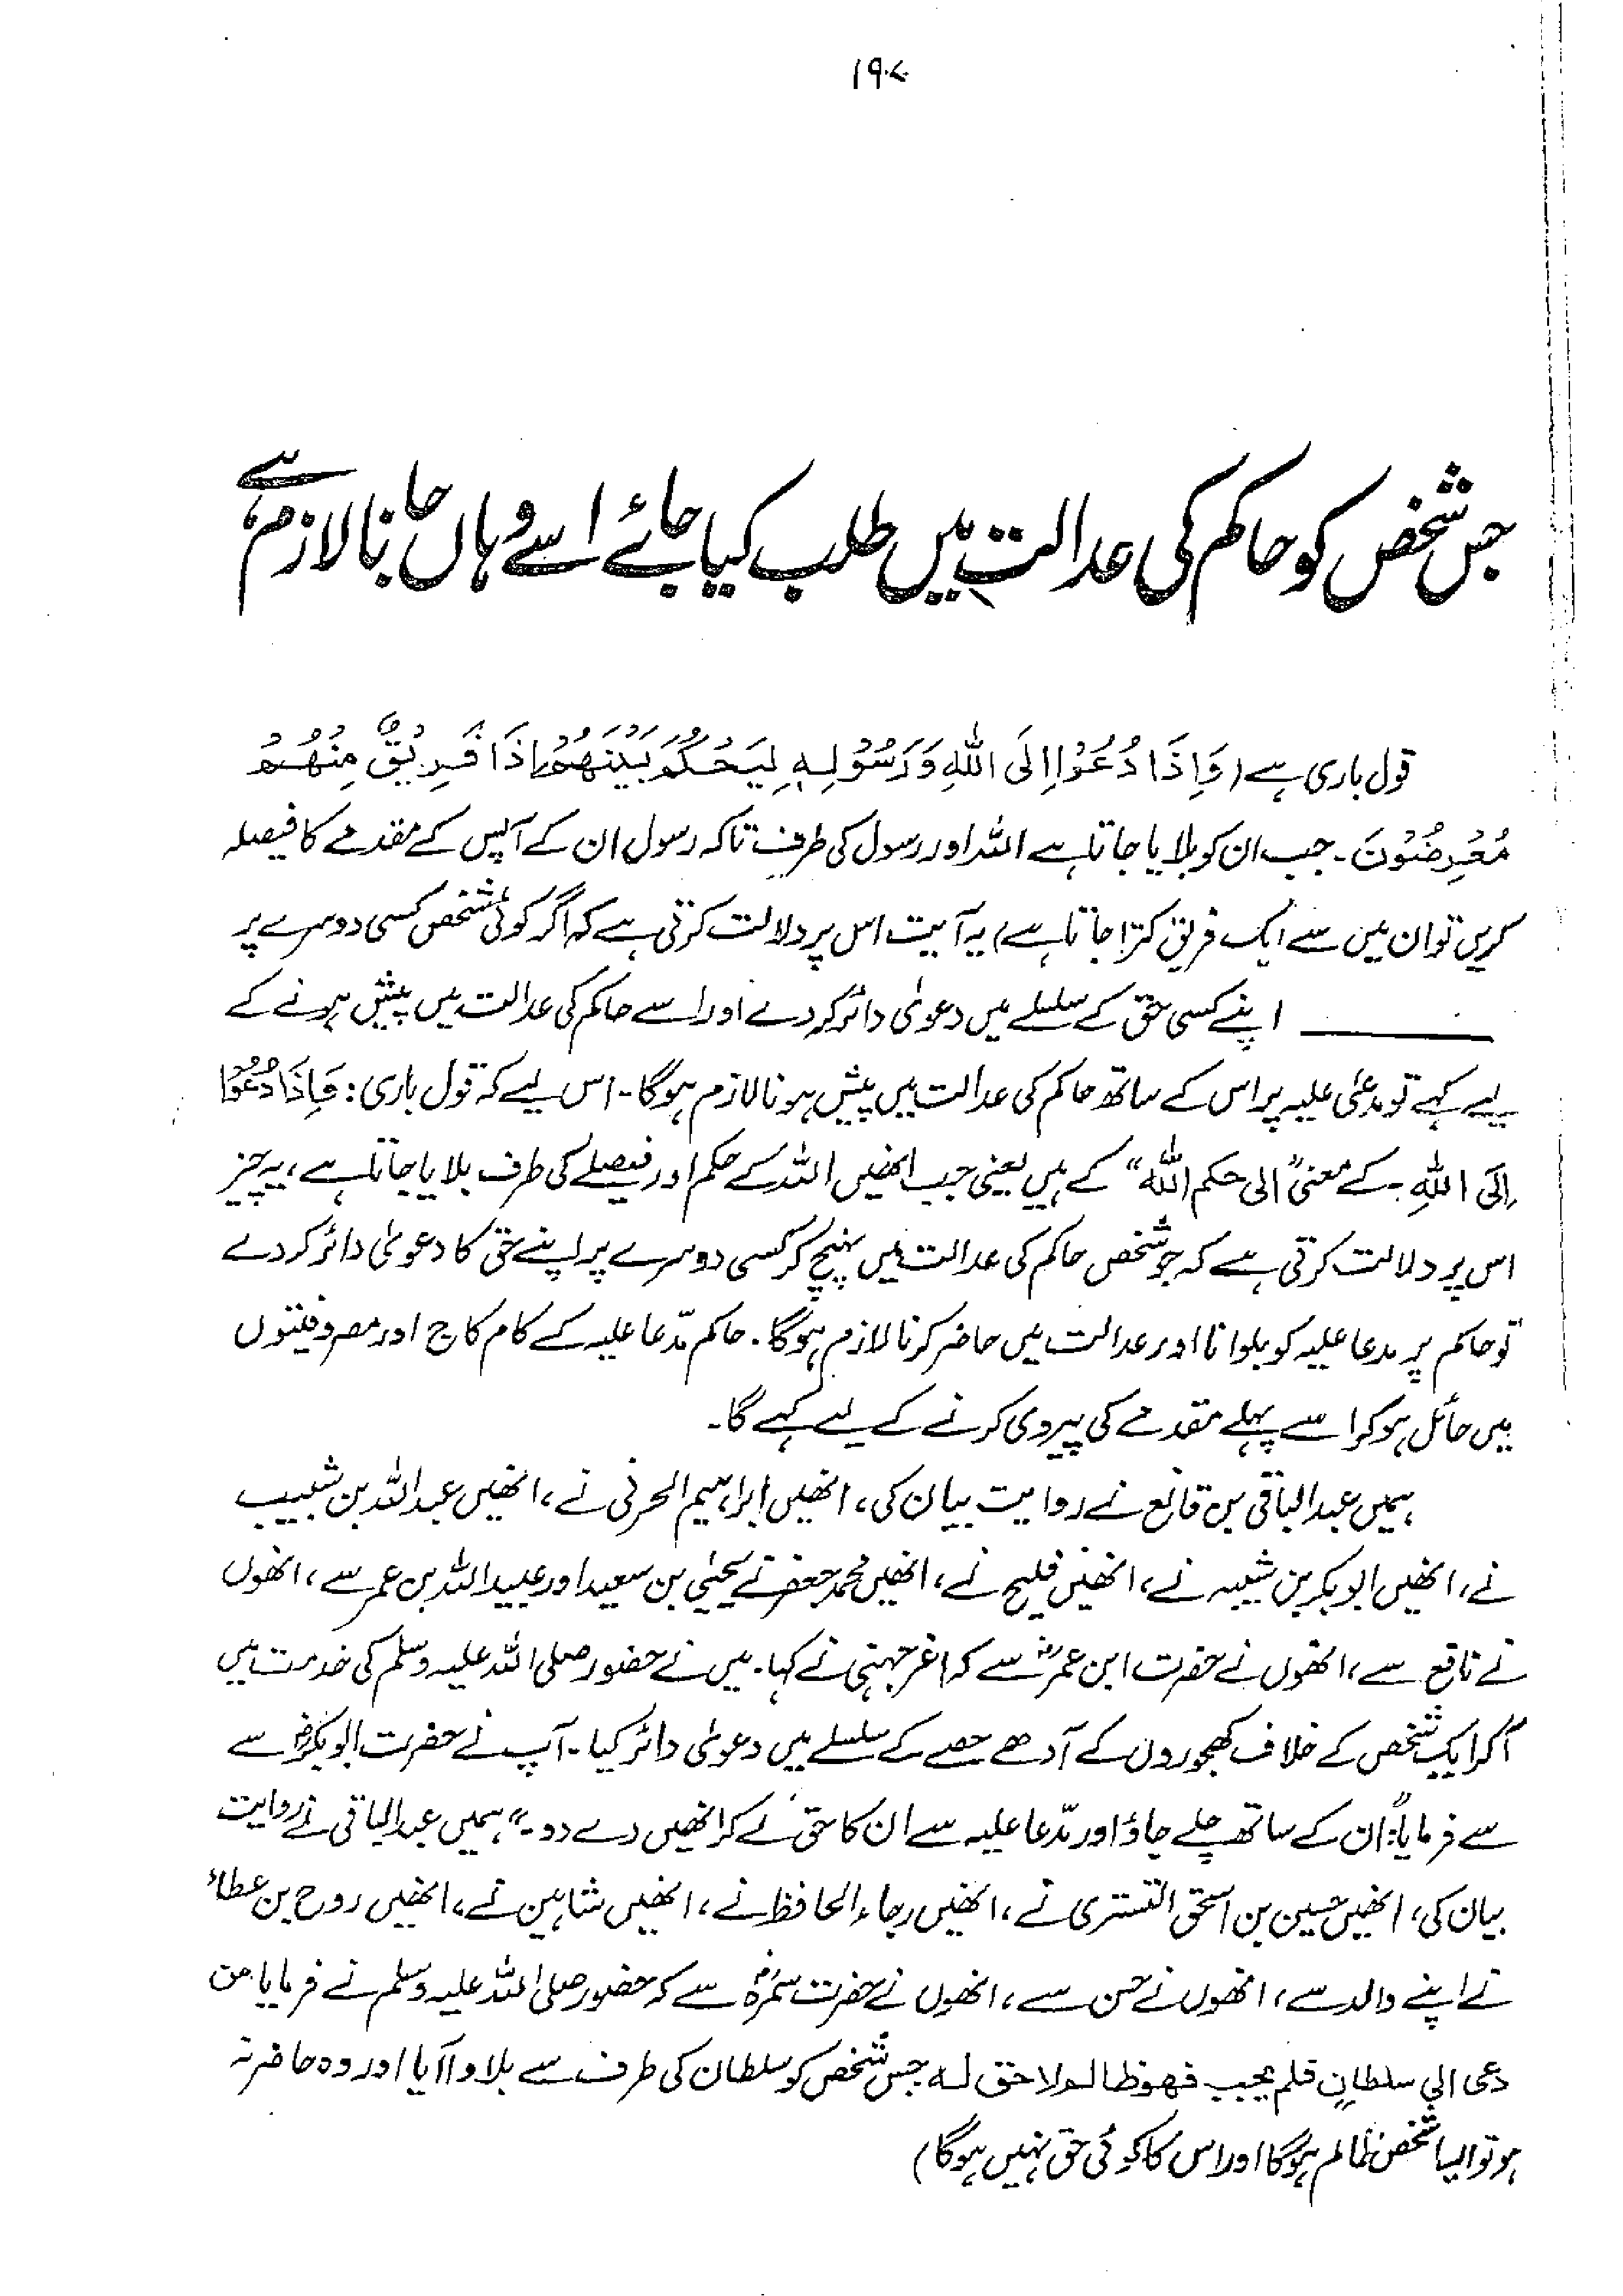 ۱۹۰۷
جس شخص کو حاکم کی عدالت میں طلب کیا جائے اسے وہاں جانا لازم ہے
قول باری ہے (وَاِذَا دُعُوْا اِلَی اللّٰهِ وَرَسُوْلِهٖ لِیَحْكُمَ بَیْنَهُمْ اِذَا فَرِیْقٌ مِنْهُمْ
مُعْرِضُوْنَ۔ جب ان کو بلایا جاتا ہے اللہ اور رسول کی طرف تاکہ رسول ان کے آپس کے مقدمے کا فیصلہ
کریں تو ان میں سے ایک فریق کترا جاتا ہے) یہ آیت اس پر دلالت کرتی ہے کہ اگر کوئی شخص کسی دوسرے پر
اپنے کسی حق کے سلسلے میں دعویٰ دائر کر دے اور اسے حاکم کی عدالت میں پیش ہونے کے
لیے کہے تو مدعیٰ علیہ پر اس کے ساتھ حاکم کی عدالت میں پیش ہونا لازم ہوگا۔ اس لیے کہ قول باری: وَاِذَا دُعُوْا
اِلَی اللّٰهِ۔ کے معنی "الی حکم اللّٰه" کے ہیں یعنی جب انھیں اللہ کے حکم اور فیصلے کی طرف بلایا جاتا ہے، یہ چیز
اس پر دلالت کرتی ہے کہ جو شخص حاکم کی عدالت میں پہنچ کر کسی دوسرے پر اپنے حق کا دعویٰ دائر کر دے
تو حاکم پر مدعا علیہ کو بلوانا اور عدالت میں حاضر کرنا لازم ہوگا۔ حاکم مدّعا علیہ کے کام کاج اور مصروفیتوں
میں حائل ہو کر اسے پہلے مقدمے کی پیروی کرنے کے لیے کہے گا۔
ہمیں عبدالباقی بن قانع نے روایت بیان کی، انھیں ابراہیم الحربی نے، انھیں عبداللہ بن شبیب
نے، انھیں ابوبکر بن شیبہ نے، انھیں فلیح نے، انھیں محمد جعفر نے یحییٰ بن سعید اور عبیداللہ بن عمر سے، انھوں
نے نافع سے، انھوں نے حضرت ابن عمرؓ سے کہ اغر جہنی نے کہا۔ میں نے حضور صلی اللہ علیہ وسلم کی خدمت میں
آکر ایک شخص کے خلاف کھجوروں کے آدھے حصے کے سلسلے میں دعویٰ دائر کیا۔ آپ نے حضرت ابوبکرؓ سے
سے فرمایا: "ان کے ساتھ چلے جاؤ اور مدّعا علیہ سے ان کا حق لے کر انھیں دے دو۔" ہمیں عبدالباقی نے روایت
بیان کی، انھیں حسین بن اسحٰق التستری نے، انھیں رجاء الحافظ نے، انھیں شاہین نے، انھیں روح بن عطاء
نے اپنے والد سے، انھوں نے حسن سے، انھوں نے حضرت سمرہؓ سے کہ حضور صلی اللہ علیہ وسلم نے فرمایا من
دعی الی سلطان فلم یجب فهو ظالم لا حق له جس شخص کو سلطان کی طرف سے بلاوا آیا اور وہ حاضر نہ
ہو تو ایسا شخص ظالم ہوگا اور اس کا کوئی حق نہیں ہوگا)